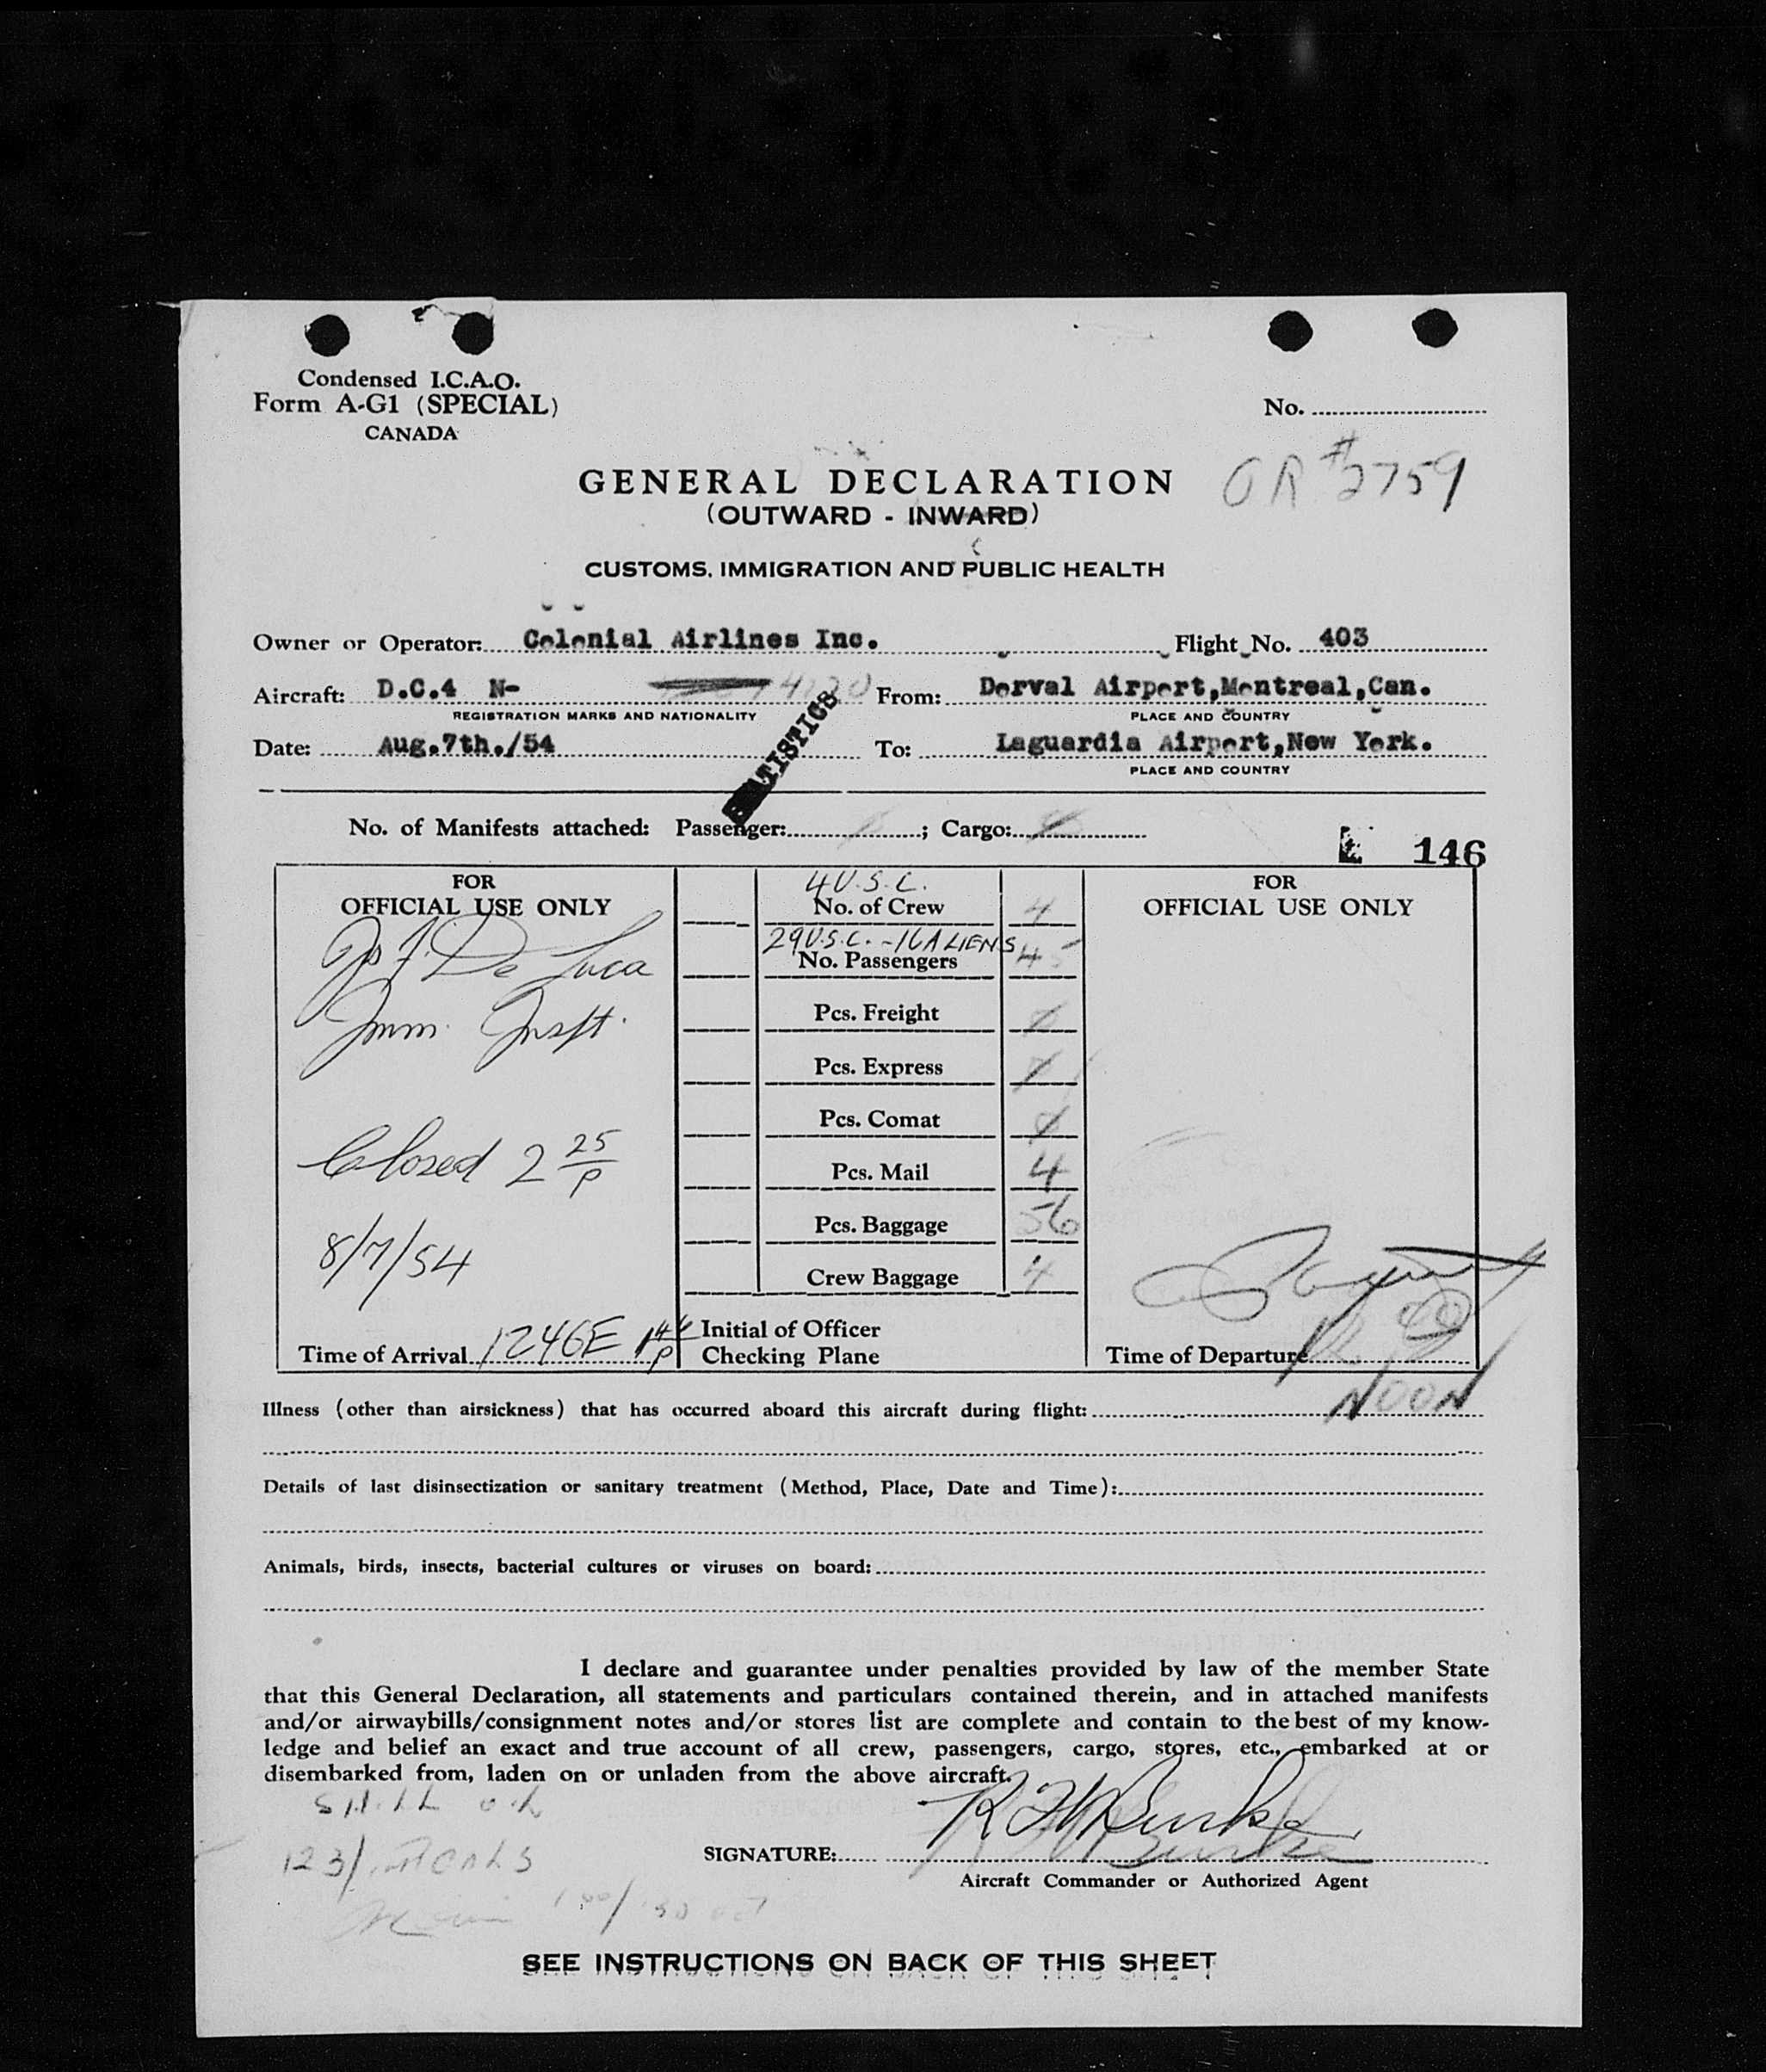 Condensed I.C.A.O.
Form A-G1 (SPECIAL)
CANADA
No.
GENERAL DECLARATION
#2759
(OUTWARD - INWARD)
CUSTOMS, IMMIGRATION AND PUBLIC HEALTH
Owner or Operator: Colonial Airlines Inc. Flight No. 403
Aircraft: D.C.4 N- From: Dorval Airport,Montreal,Can.
REGISTRATION MARKS AND NATIONALITY PLACE AND COUNTRY
Date: Aug.7th./54 To: Laguardia Airport,New York.
PLACE AND COUNTRY
No. of Manifests attached: Passenger: ; Cargo:
146
FOR
OFFICIAL USE ONLY
De Luca
Imm. Inspt.
Closed 2 25/P
8/7/54
Time of Arrival 1246E
4 U.S.C.
No. of Crew 4
29 U.S.C. - 16 ALIENS
No. Passengers 45
Pcs. Freight
Pcs. Express
Pcs. Comat
Pcs. Mail 4
Pcs. Baggage 56
Crew Baggage 4
Initial of Officer
Checking Plane
FOR
OFFICIAL USE ONLY
Time of Departure
NOON
Illness (other than airsickness) that has occurred aboard this aircraft during flight:
Details of last disinsectization or sanitary treatment (Method, Place, Date and Time):
Animals, birds, insects, bacterial cultures or viruses on board:
I declare and guarantee under penalties provided by law of the member State
that this General Declaration, all statements and particulars contained therein, and in attached manifests
and/or airwaybills/consignment notes and/or stores list are complete and contain to the best of my know-
ledge and belief an exact and true account of all crew, passengers, cargo, stores, etc., embarked at or
disembarked from, laden on or unladen from the above aircraft.
SIGNATURE: Burke
Aircraft Commander or Authorized Agent
SEE INSTRUCTIONS ON BACK OF THIS SHEET